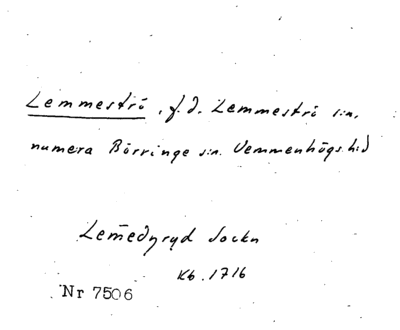 Lemmeströ, f.d. Lemmeströ sn.
numera Börringe sn. Vemmenhögs hd
Lem̄edyryd Sockn
Kb. 1716
Nr 7506